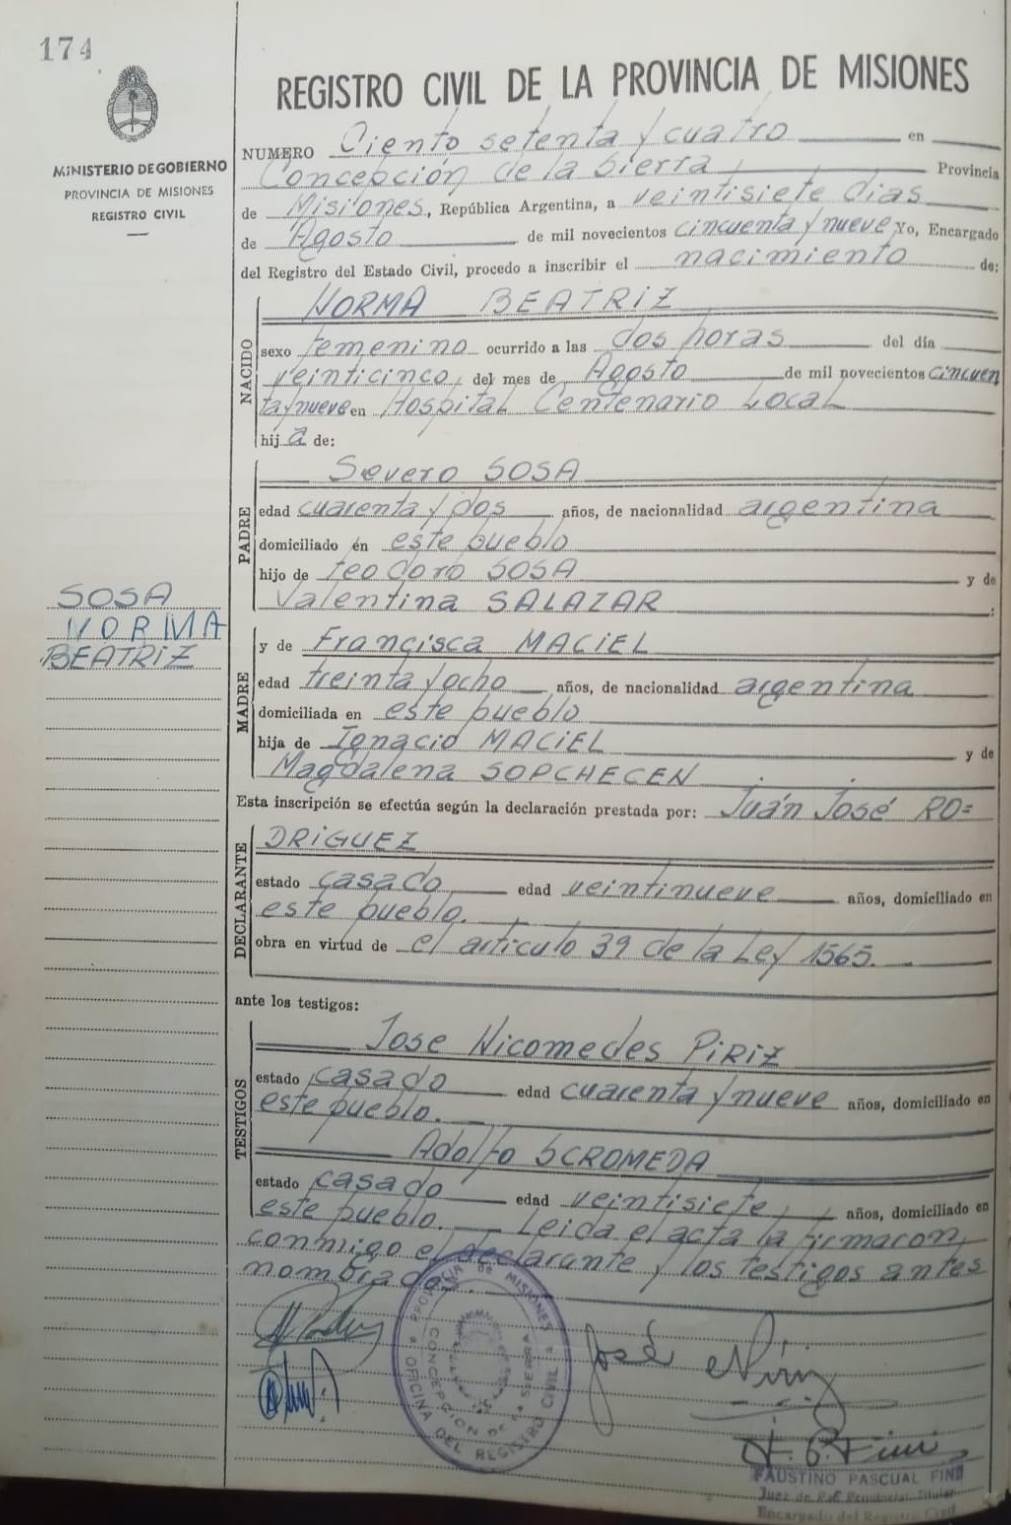 174
MINISTERIO DE GOBIERNO
PROVINCIA DE MISIONES
REGISTRO CIVIL
REGISTRO CIVIL DE LA PROVINCIA DE MISIONES
NUMERO Ciento setenta y cuatro en
Concepción de la Sierra Provincia
de Misiones, República Argentina, a veintisiete dias
de Agosto de mil novecientos cincuenta y nueve Yo, Encargado
del Registro del Estado Civil, procedo a inscribir el nacimiento de:
NACIDO
NORMA BEATRIZ
sexo femenino ocurrido a las dos horas del día
veinticinco, del mes de Agosto de mil novecientos cincuen
ta y nueve en Hospital Centenario Local
hij a de:
PADRE
Severo SOSA
edad cuarenta y dos años, de nacionalidad argentina
domiciliado en este pueblo
hijo de Teodoro SOSA y de
Valentina SALAZAR :
SOSA
NORMA
BEATRIZ
MADRE
y de Francisca MACIEL
edad treinta y ocho años, de nacionalidad argentina
domiciliada en este pueblo
hija de Ignacio MACIEL y de
Magdalena SOPCHECEN .
Esta inscripción se efectúa según la declaración prestada por: Juán José RO=
DECLARANTE
DRIGUEZ
estado casado edad veintinueve años, domiciliado en
este pueblo.
obra en virtud de el articulo 39 de la Ley 1565.
ante los testigos:
TESTIGOS
Jose Nicomedes PIRIZ
estado casado edad cuarenta y nueve años, domiciliado en
este pueblo.
Adolfo SCROMEDA
estado casado edad veintisiete, años, domiciliado en
este pueblo. Leida el acta la firmaron
conmigo el declarante y los testigos antes
nombrados.
PROVINCIA DE MISIONES
OFICINA DEL REGISTRO CIVIL
CONCEPCION DE LA SIERRA
José
FAUSTINO PASCUAL FINI
Juez de Paz Provincial Titular
Encargado del Registro Civil